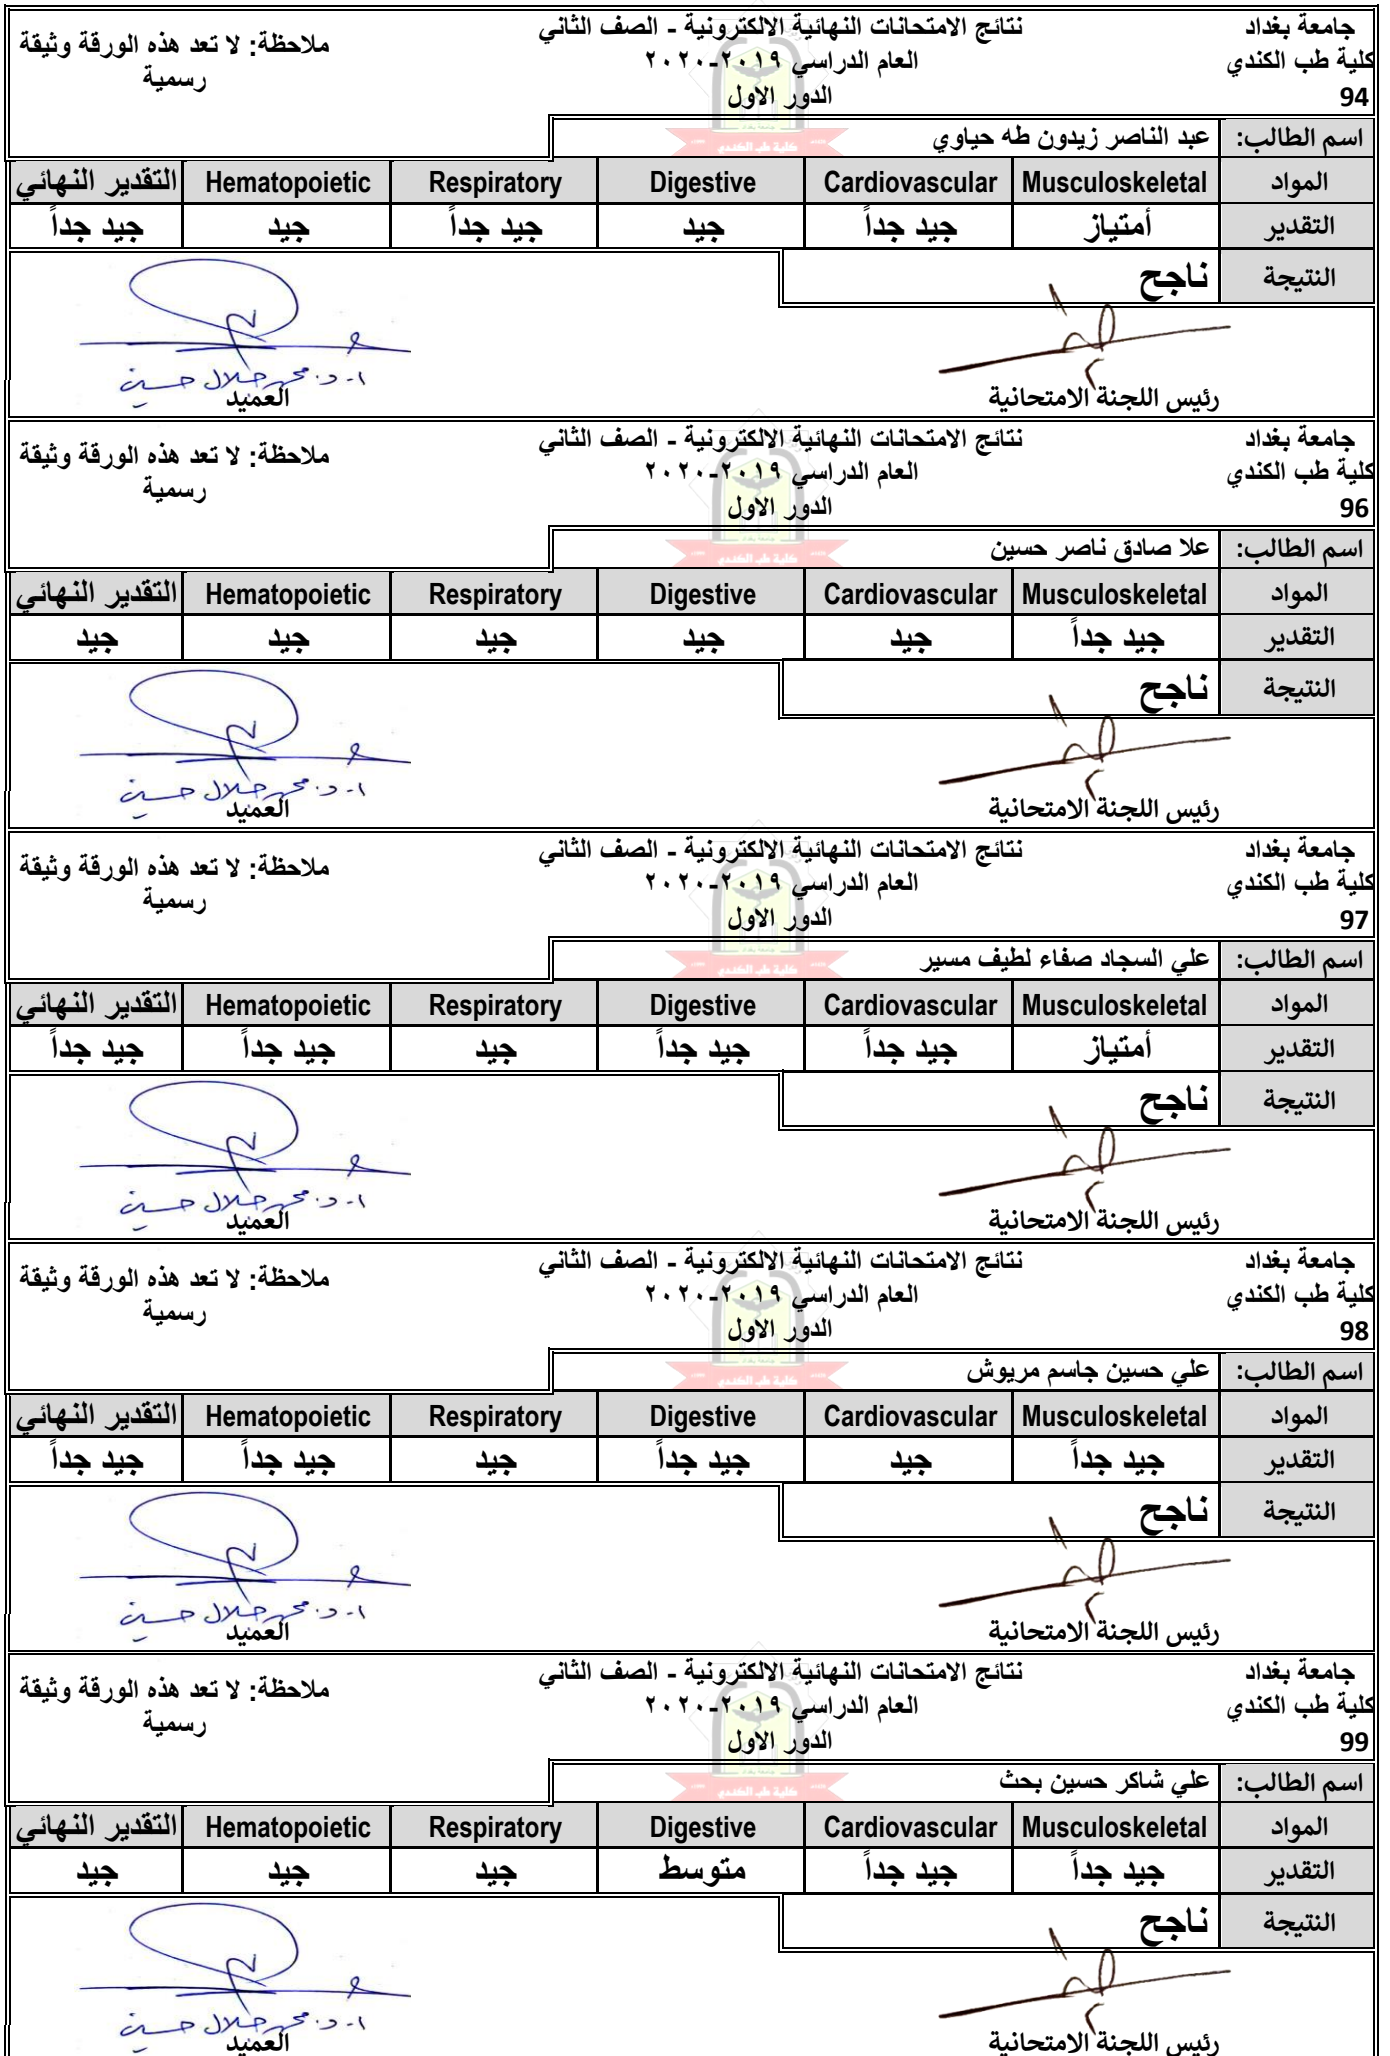 جامعة بغداد
كلية طب الكندي
94
نتائج الامتحانات النهائية الالكترونية - الصف الثاني
العام الدراسي ٢٠١٩-٢٠٢٠
الدور الاول
ملاحظة: لا تعد هذه الورقة وثيقة
رسمية
كلية طب الكندي
اسم الطالب: عبد الناصر زيدون طه حياوي
المواد Musculoskeletal Cardiovascular Digestive Respiratory Hematopoietic التقدير النهائي
التقدير أمتياز جيد جداً جيد جيد جداً جيد جيد جداً
النتيجة ناجح
ا. د. محمد جلال حسين
رئيس اللجنة الامتحانية العميد
جامعة بغداد
كلية طب الكندي
96
نتائج الامتحانات النهائية الالكترونية - الصف الثاني
العام الدراسي ٢٠١٩-٢٠٢٠
الدور الاول
ملاحظة: لا تعد هذه الورقة وثيقة
رسمية
كلية طب الكندي
اسم الطالب: علا صادق ناصر حسين
المواد Musculoskeletal Cardiovascular Digestive Respiratory Hematopoietic التقدير النهائي
التقدير جيد جداً جيد جيد جيد جيد جيد
النتيجة ناجح
ا. د. محمد جلال حسين
رئيس اللجنة الامتحانية العميد
جامعة بغداد
كلية طب الكندي
97
نتائج الامتحانات النهائية الالكترونية - الصف الثاني
العام الدراسي ٢٠١٩-٢٠٢٠
الدور الاول
ملاحظة: لا تعد هذه الورقة وثيقة
رسمية
كلية طب الكندي
اسم الطالب: علي السجاد صفاء لطيف مسير
المواد Musculoskeletal Cardiovascular Digestive Respiratory Hematopoietic التقدير النهائي
التقدير أمتياز جيد جداً جيد جداً جيد جيد جداً جيد جداً
النتيجة ناجح
ا. د. محمد جلال حسين
رئيس اللجنة الامتحانية العميد
جامعة بغداد
كلية طب الكندي
98
نتائج الامتحانات النهائية الالكترونية - الصف الثاني
العام الدراسي ٢٠١٩-٢٠٢٠
الدور الاول
ملاحظة: لا تعد هذه الورقة وثيقة
رسمية
كلية طب الكندي
اسم الطالب: علي حسين جاسم مريوش
المواد Musculoskeletal Cardiovascular Digestive Respiratory Hematopoietic التقدير النهائي
التقدير جيد جداً جيد جيد جداً جيد جيد جداً جيد جداً
النتيجة ناجح
ا. د. محمد جلال حسين
رئيس اللجنة الامتحانية العميد
جامعة بغداد
كلية طب الكندي
99
نتائج الامتحانات النهائية الالكترونية - الصف الثاني
العام الدراسي ٢٠١٩-٢٠٢٠
الدور الاول
ملاحظة: لا تعد هذه الورقة وثيقة
رسمية
كلية طب الكندي
اسم الطالب: علي شاكر حسين بحث
المواد Musculoskeletal Cardiovascular Digestive Respiratory Hematopoietic التقدير النهائي
التقدير جيد جداً جيد جداً متوسط جيد جيد جيد
النتيجة ناجح
ا. د. محمد جلال حسين
رئيس اللجنة الامتحانية العميد